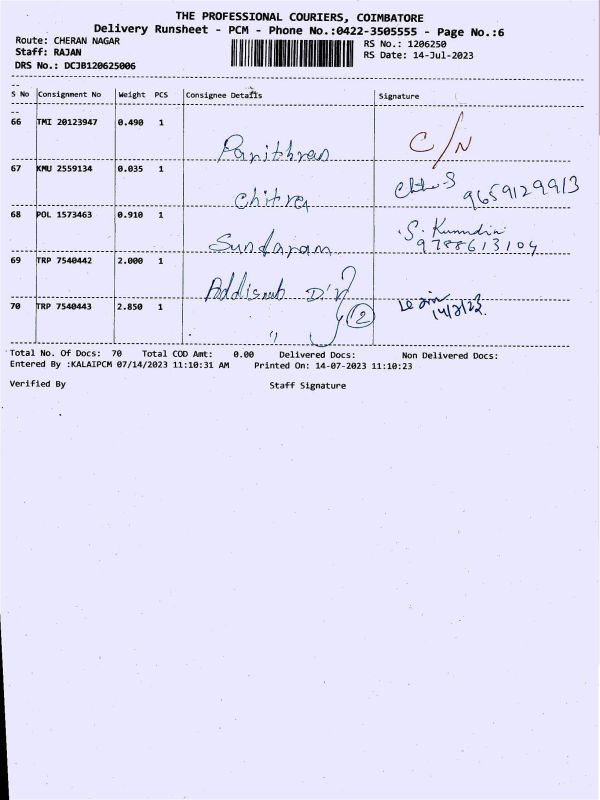 THE PROFESSIONAL COURIERS, COIMBATORE
Delivery Runsheet - PCM - Phone No.:0422-3505555 - Page No.:6
Route: CHERAN NAGAR RS No.: 1206250
Staff: RAJAN RS Date: 14-Jul-2023
DRS No.: DCJB120625006
S No Consignment No Weight PCS Consignee Details Signature
66 TMI 20123947 0.490 1 C/N
67 KMU 2559134 0.035 1 Chitra 9659129913
68 POL 1573463 0.910 1 Sundaram S. 9788613104
69 TRP 7540442 2.000 1
70 TRP 7540443 2.850 1 " 2
Total No. Of Docs: 70 Total COD Amt: 0.00 Delivered Docs: Non Delivered Docs:
Entered By :KALAIPCM 07/14/2023 11:10:31 AM Printed On: 14-07-2023 11:10:23
Verified By Staff Signature